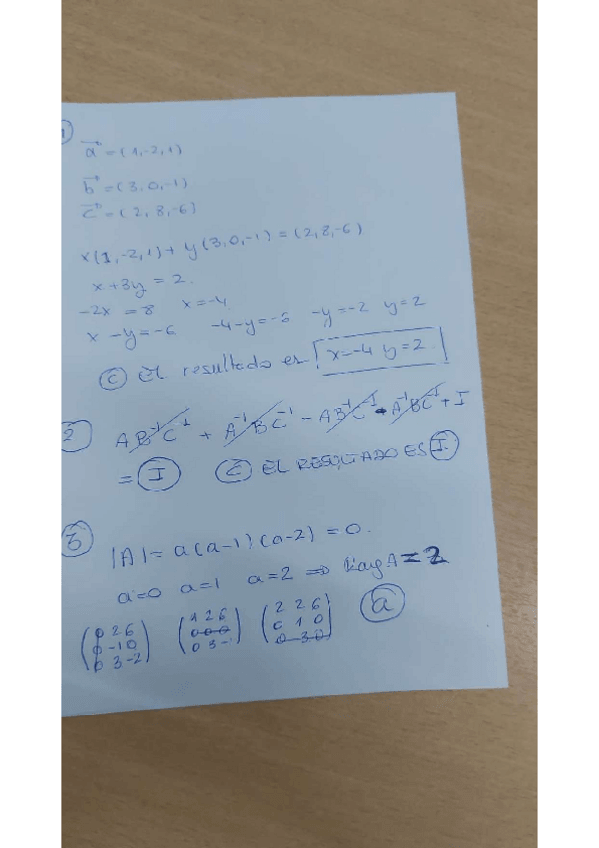 1
a⃗ = (1,-2,1)
b⃗ = (3,0,-1)
c⃗ = (2,8,-6)
x(1,-2,1) + y(3,0,-1) = (2,8,-6)
x+3y = 2.
-2x = 8 x=-4
x -y=-6 -4-y=-6 -y=-2 y=2
c El resultado es x=-4 y=2.
2 AB⁻¹C⁻¹ + A⁻¹BC⁻¹ - AB⁻¹C⁻¹ - A⁻¹BC⁻¹ + I
= I c EL RESULTADO ES I
3
|A| = a(a-1)(a-2) = 0.
a=0 a=1 a=2 ⇒ Rang A = 2
0 2 6 1 2 6 2 2 6 a
0 -1 0 0 0 0 0 1 0
0 3 -2 0 3 - 0 3 0